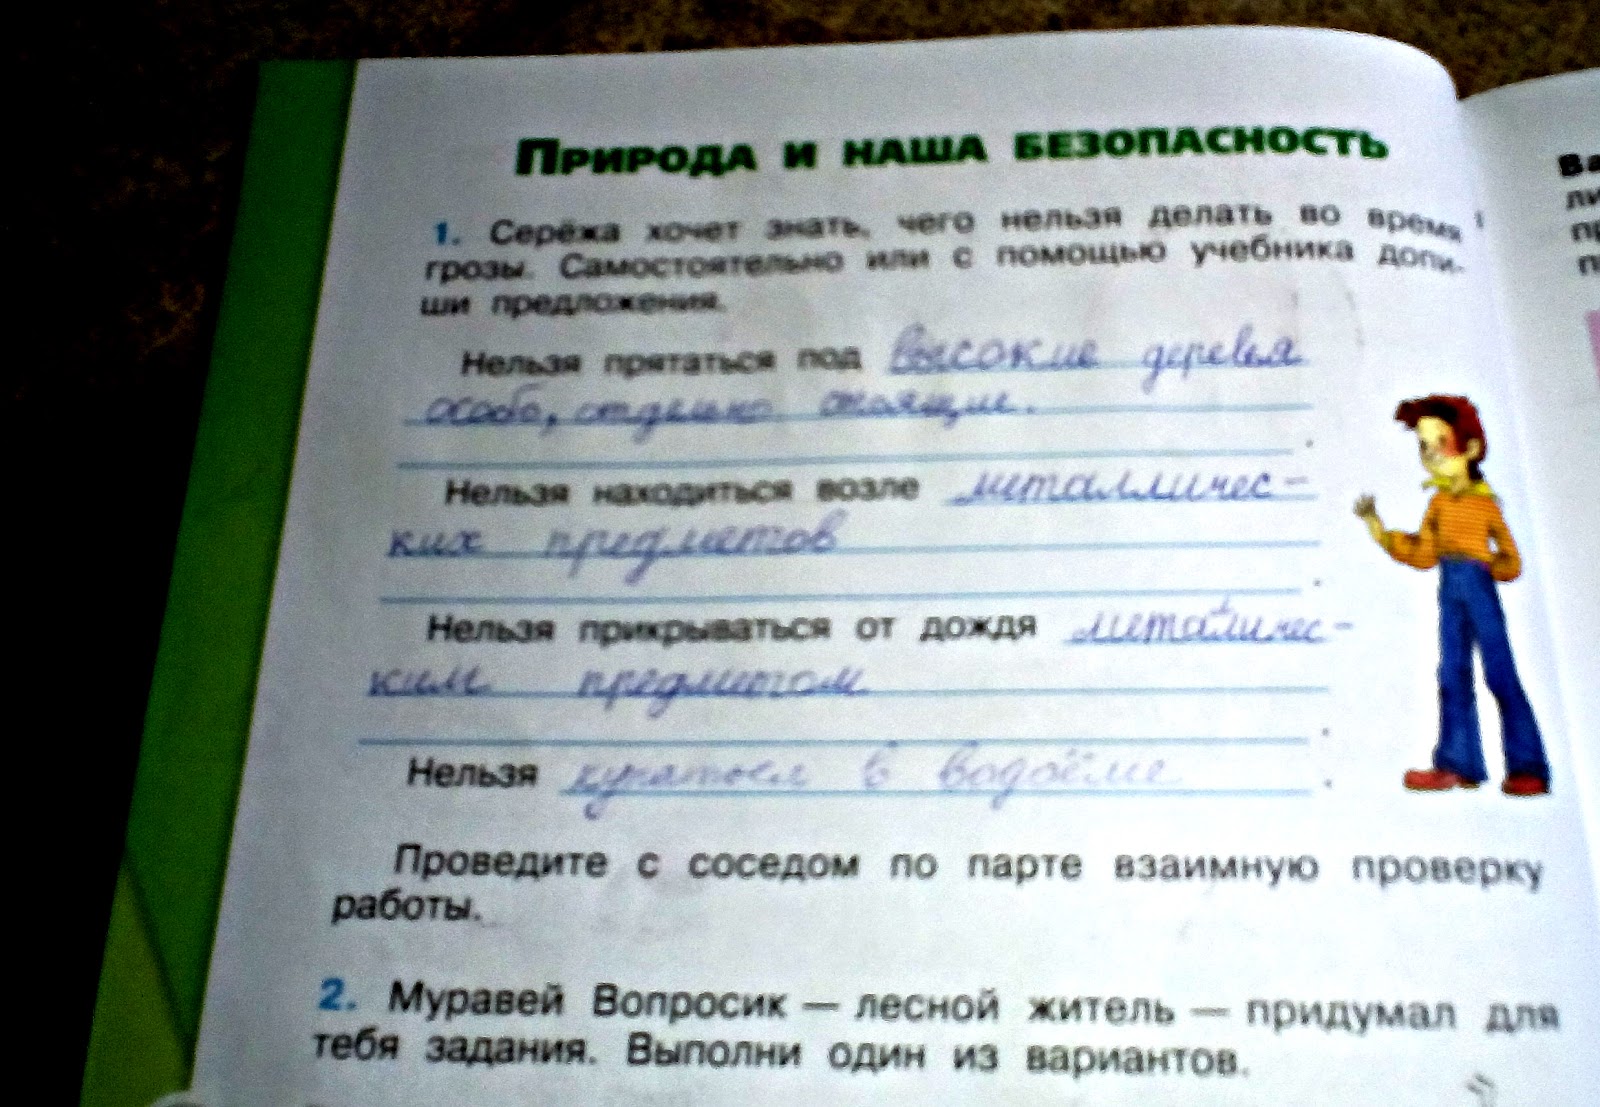 Природа и наша безопасность
1. Серёжа хочет знать, чего нельзя делать во время
грозы. Самостоятельно или с помощью учебника допи-
ши предложения.
Нельзя прятаться под высокие деревья
особо, отдельно стоящие.
Нельзя находиться возле металличес-
ких предметов.
Нельзя прикрываться от дождя металличес-
ким предметом.
Нельзя купаться в водоёме.
Проведите с соседом по парте взаимную проверку
работы.
2. Муравей Вопросик — лесной житель — придумал для
тебя задания. Выполни один из вариантов.